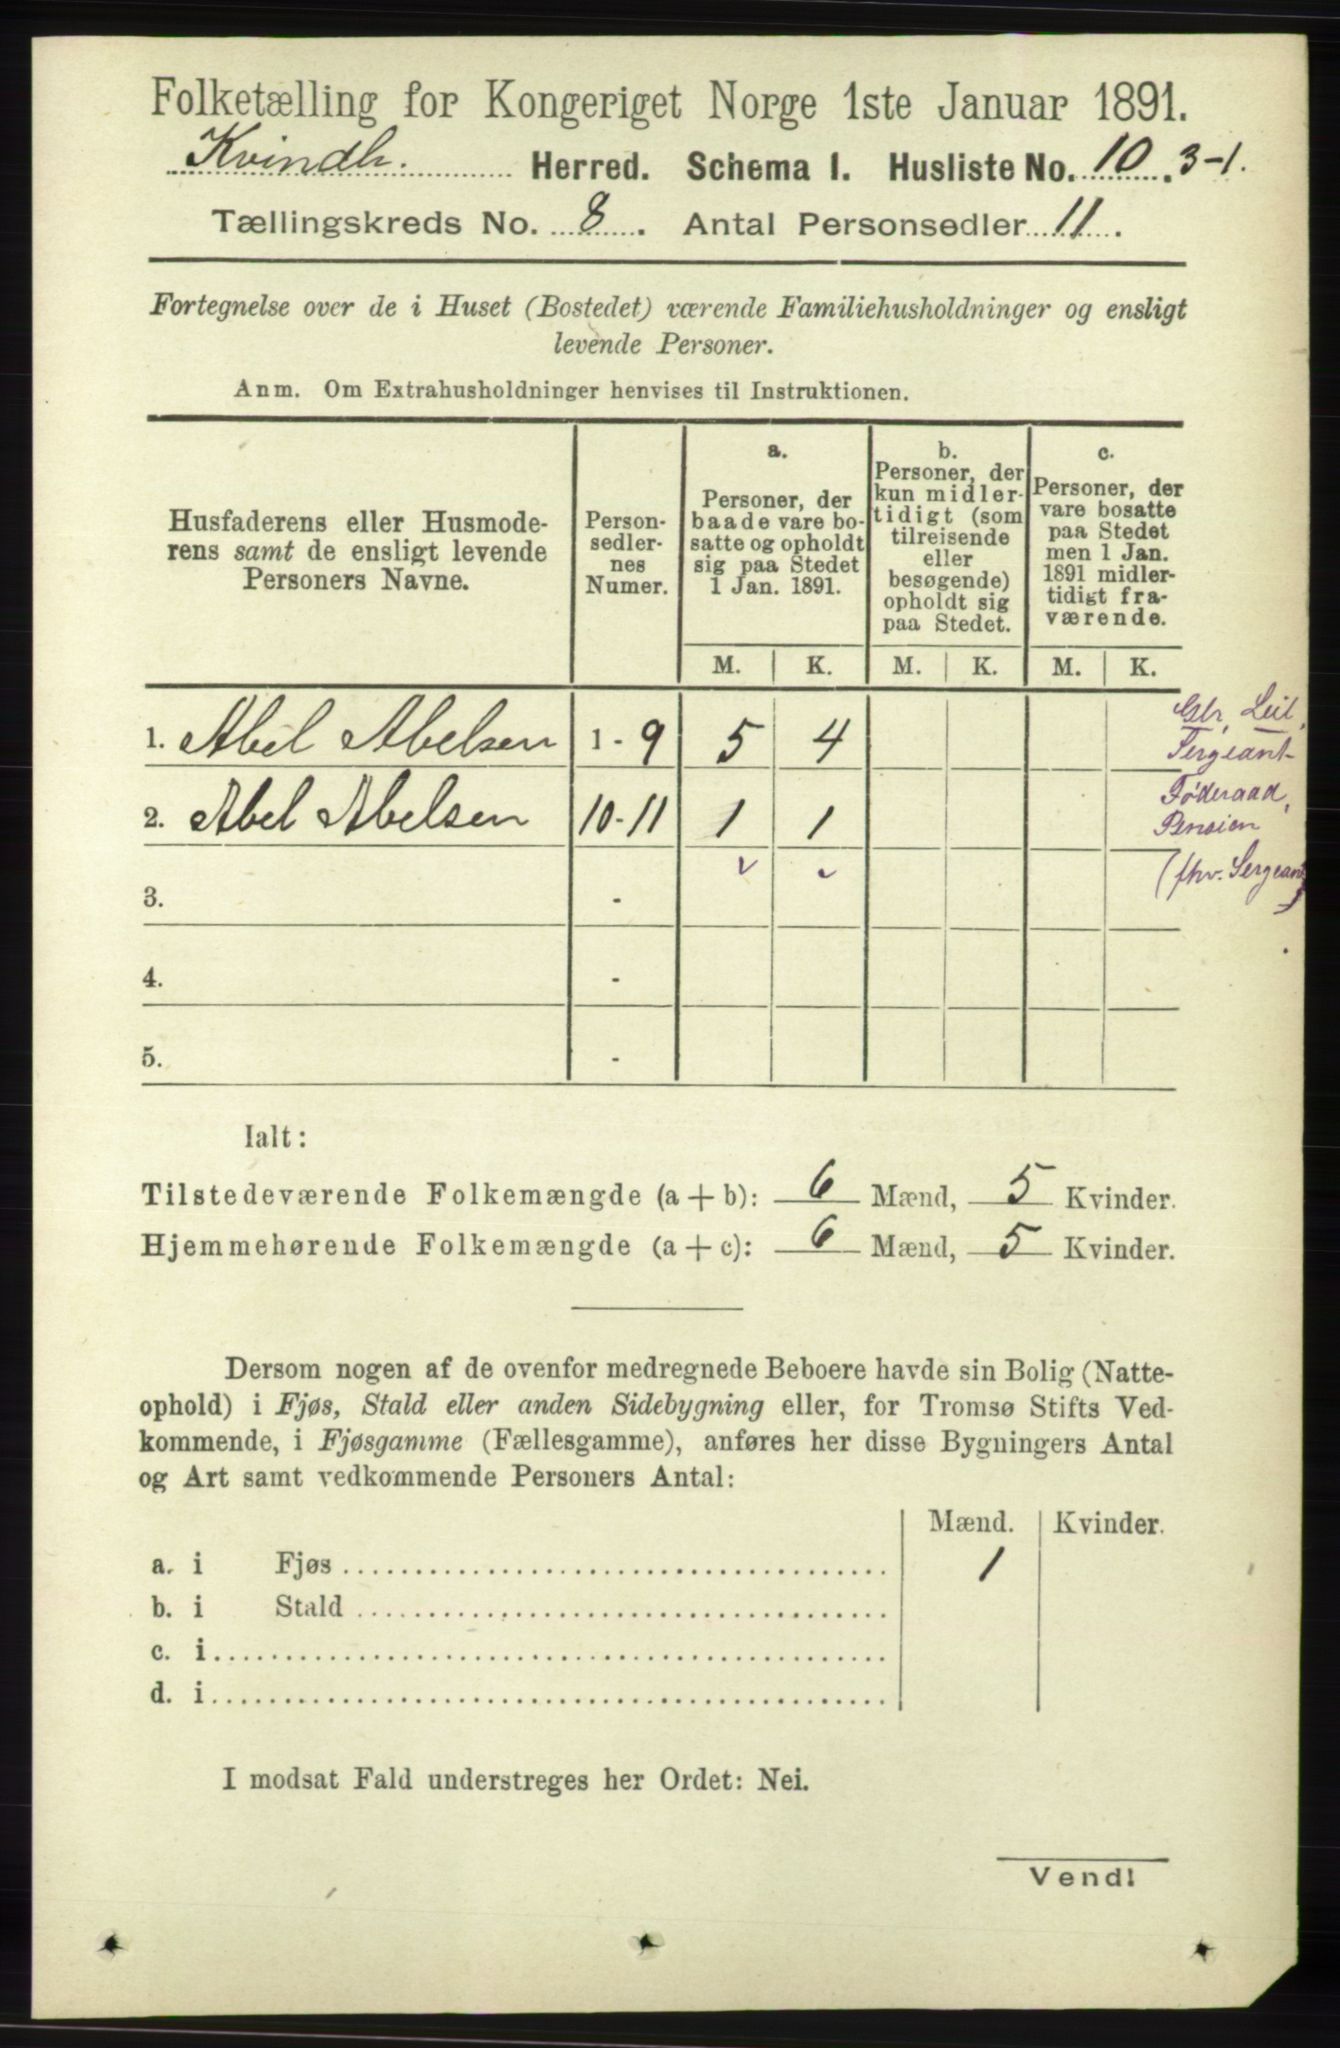 Folketælling for Kongeriget Norge 1ste Januar 1891.
Kvindh. Herred. Schema I. Husliste No. 10. 3-1.
Tællingskreds No. 8. Antal Personsedler 11.
Fortegnelse over de i Huset (Bostedet) værende Familiehusholdninger og ensligt
levende Personer.
Anm. Om Extrahusholdninger henvises til Instruktionen.
Husfaderens eller Husmode-
rens samt de ensligt levende
Personers Navne.
Person-
sedler-
nes
Numer.
a.
Personer, der
baade vare bo-
satte og opholdt
sig paa Stedet
1 Jan. 1891.
b.
Personer, der
kun midler-
tidigt (som
tilreisende
eller
besøgende)
opholdt sig
paa Stedet.
c.
Personer, der
vare bosatte
paa Stedet
men 1 Jan.
1891 midler-
tidigt fra-
værende.
M. K. M. K. M. K.
1. Abel Abelsen 1 - 9 5 4
Gbr, Leil,
Sergeant
2. Abel Abelsen 10-11 1 1
Føderaad,
Pension
(fhv. Sergeant)
3. -
4. -
5. -
Ialt:
Tilstedeværende Folkemængde (a + b): 6 Mænd, 5 Kvinder.
Hjemmehørende Folkemængde (a + c): 6 Mænd, 5 Kvinder.
Dersom nogen af de ovenfor medregnede Beboere havde sin Bolig (Natte-
ophold) i Fjøs, Stald eller anden Sidebygning eller, for Tromsø Stifts Ved-
kommende, i Fjøsgamme (Fællesgamme), anføres her disse Bygningers Antal
og Art samt vedkommende Personers Antal:
Mænd. Kvinder.
a. i Fjøs 1
b. i Stald
c. i
d. i
I modsat Fald understreges her Ordet: Nei.
Vend!